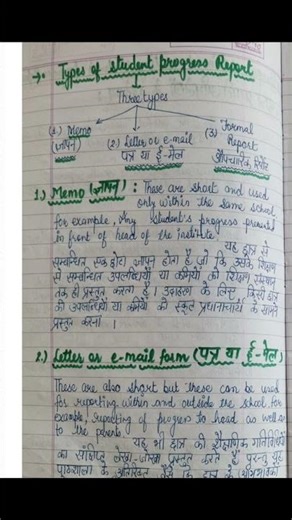 →. Types of student progress Report
Three types
(1.) Memo
(ज्ञापन)
(2.) Letter or e-mail
पत्र या ई-मेल
(3) Formal
Report
औपचारिक रिपोर्ट
1.) Memo (ज्ञापन) : These are short and used
only within the same school
for example, Any student's progress presented
in front of head of the institute.
यह छात्र से
सम्बन्धित एक छोटा ज्ञापन होता है जो कि उसके शिक्षण
से सम्बन्धित उपलब्धियों या कमियों को शिक्षण संस्थान
तक ही प्रस्तुत करता है। उदाहरण के लिए, किसी छात्र
की उपलब्धियों या कमियों को स्कूल प्रधानाचार्य के सामने
प्रस्तुत करना।
2.) Letter or e-mail form (पत्र या ई-मेल)
These are also short but these can be used
for reporting within and outside the school for
example, reporting of progress to head as well as
to the parents.
यह भी छात्र की शैक्षणिक गतिविधियों
का संक्षिप्त लेखा-जोखा प्रस्तुत करते हैं परन्तु यह
पाठशाला के अतिरिक्त जैसे कि छात्र के अभिभावकों